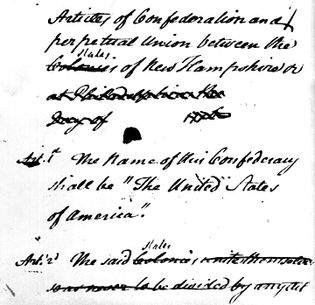 Articles of Confederation and
perpetual Union between the
States
Colonies of New Hampshire &c
at Philadelphia the
Day of 177
Art. 1st The Name of this Confederacy
shall be "The United States
of America".
States
Art. 2d The said Colonies unite themselves
so as never to be divided by any Act